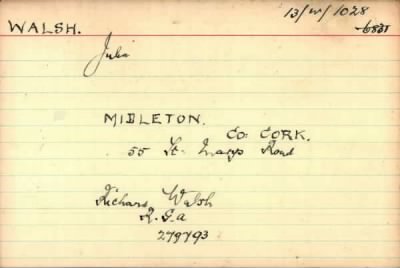 13/W/1028
WALSH.
6831
Julia
MIDLETON.
Co. CORK.
55 St. Marys Road
Richard Walsh
R.G.A
279793